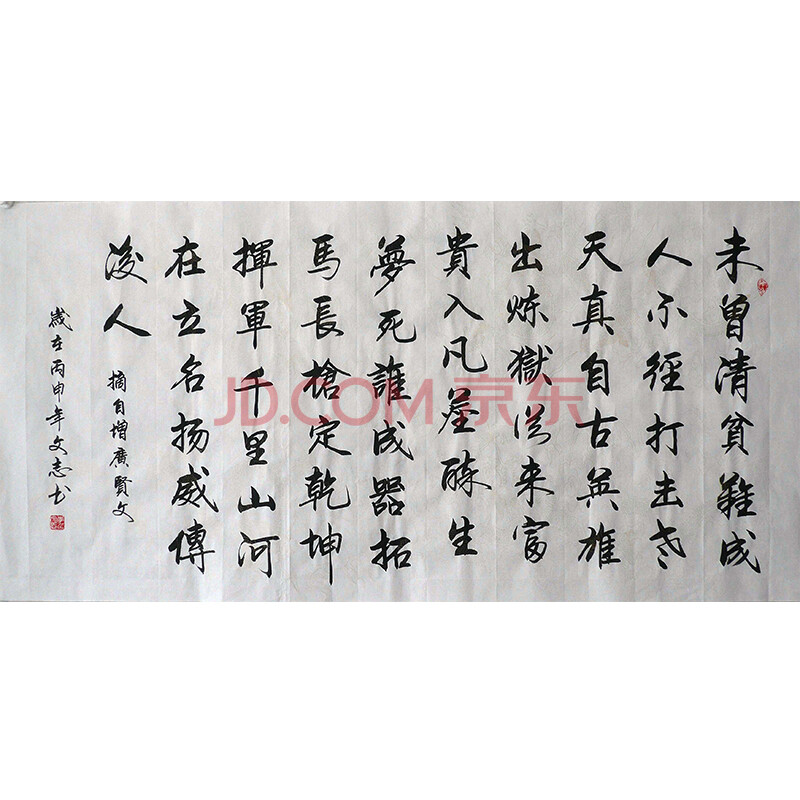 未曾清貧難成
人不經打击老
天真自古英雄
出炼獄從来富
貴入凡塵醉生
夢死誰成器拓
馬長槍定乾坤
揮軍千里山河
在立名扬威傳
後人
摘自增廣賢文
歲在丙申年文志书
JD.COM 京东